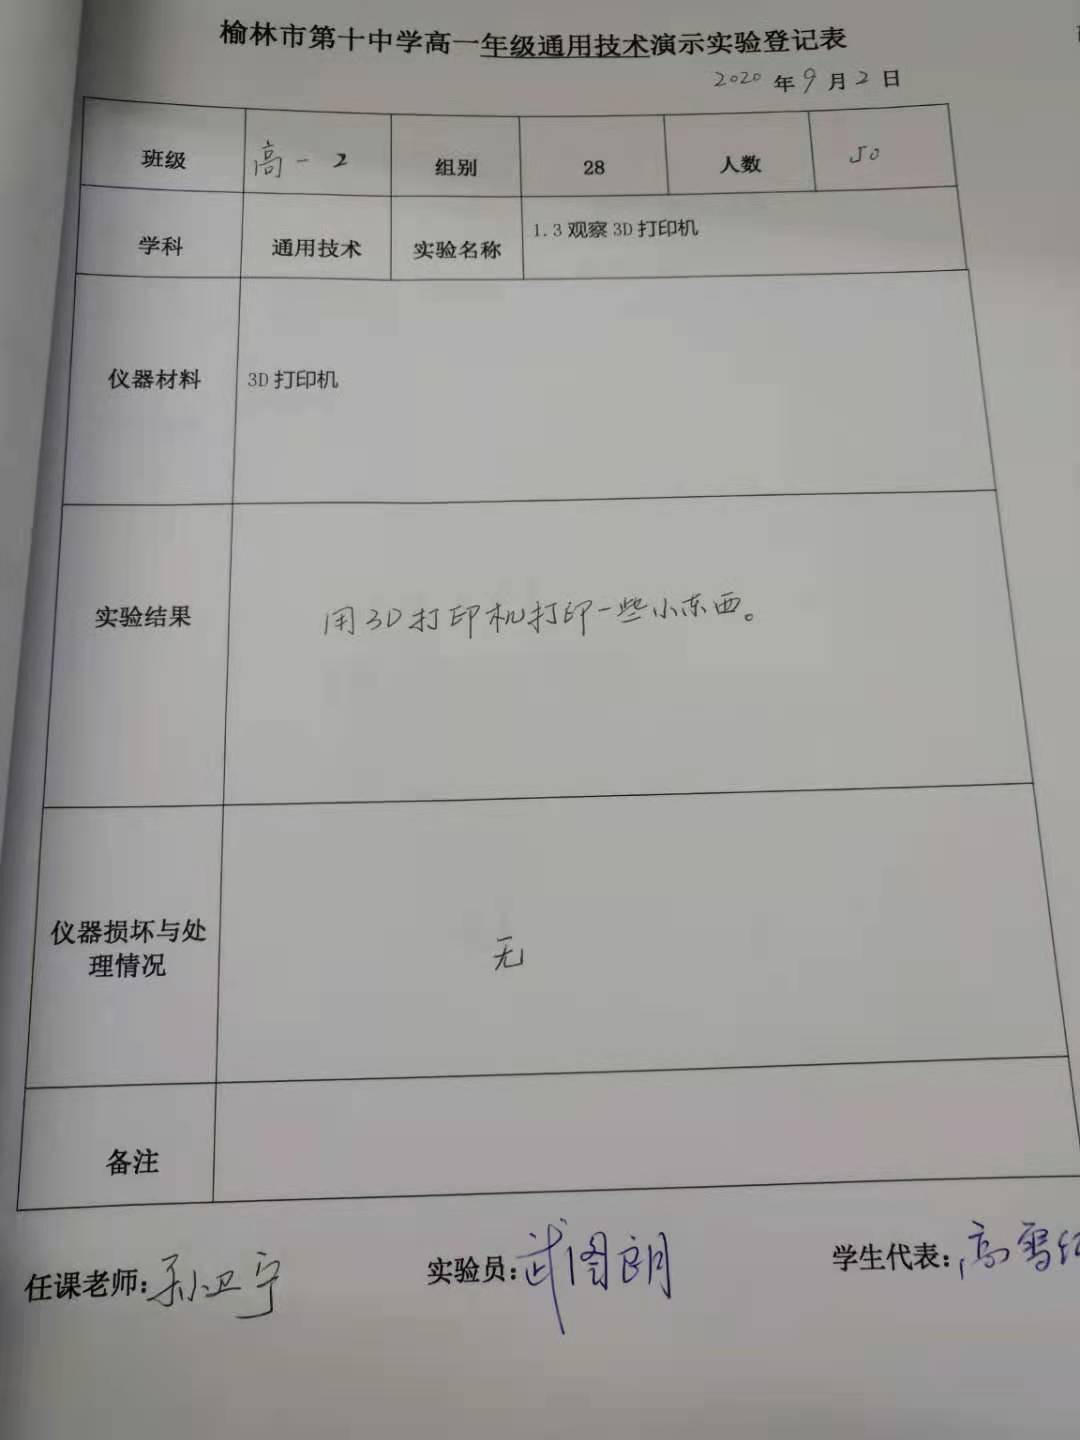 榆林市第十中学高一年级通用技术演示实验登记表
2020 年 9 月 2 日
班级 高一 2 组别 28 人数 50
学科 通用技术 实验名称 1.3 观察 3D 打印机
仪器材料 3D 打印机
实验结果 用3D打印机打印一些小东西。
仪器损坏与处
理情况 无
备注
任课老师: 孙卫宁 实验员: 武图朗 学生代表: 高雪